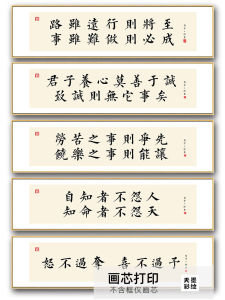 路雖遠行則將至
事雖難做則必成
君子養心莫善于誠
致誠則無它事矣
勞苦之事則爭先
饒樂之事則能讓
自知者不怨人
知命者不怨天
怒不過奪 喜不過予
画芯打印
不含框仅画芯